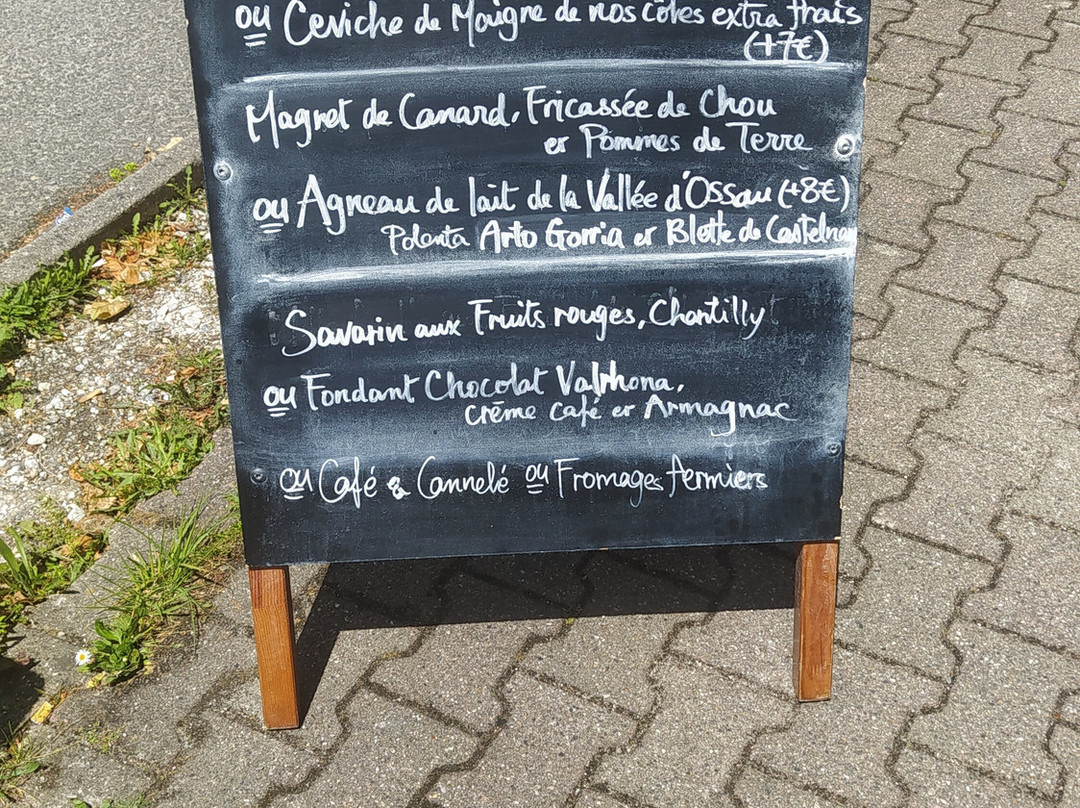 ou Ceviche de Maigre de nos côtes extra frais
(+7€)
Magret de Canard, Fricassée de Chou
et Pommes de Terre
ou Agneau de lait de la Vallée d'Ossau (+8€)
Polenta Arto Gorria et Blette de Castelnau
Savarin aux Fruits rouges, Chantilly
ou Fondant Chocolat Valrhona,
crème café et Armagnac
ou Café & Cannelé ou Fromages fermiers